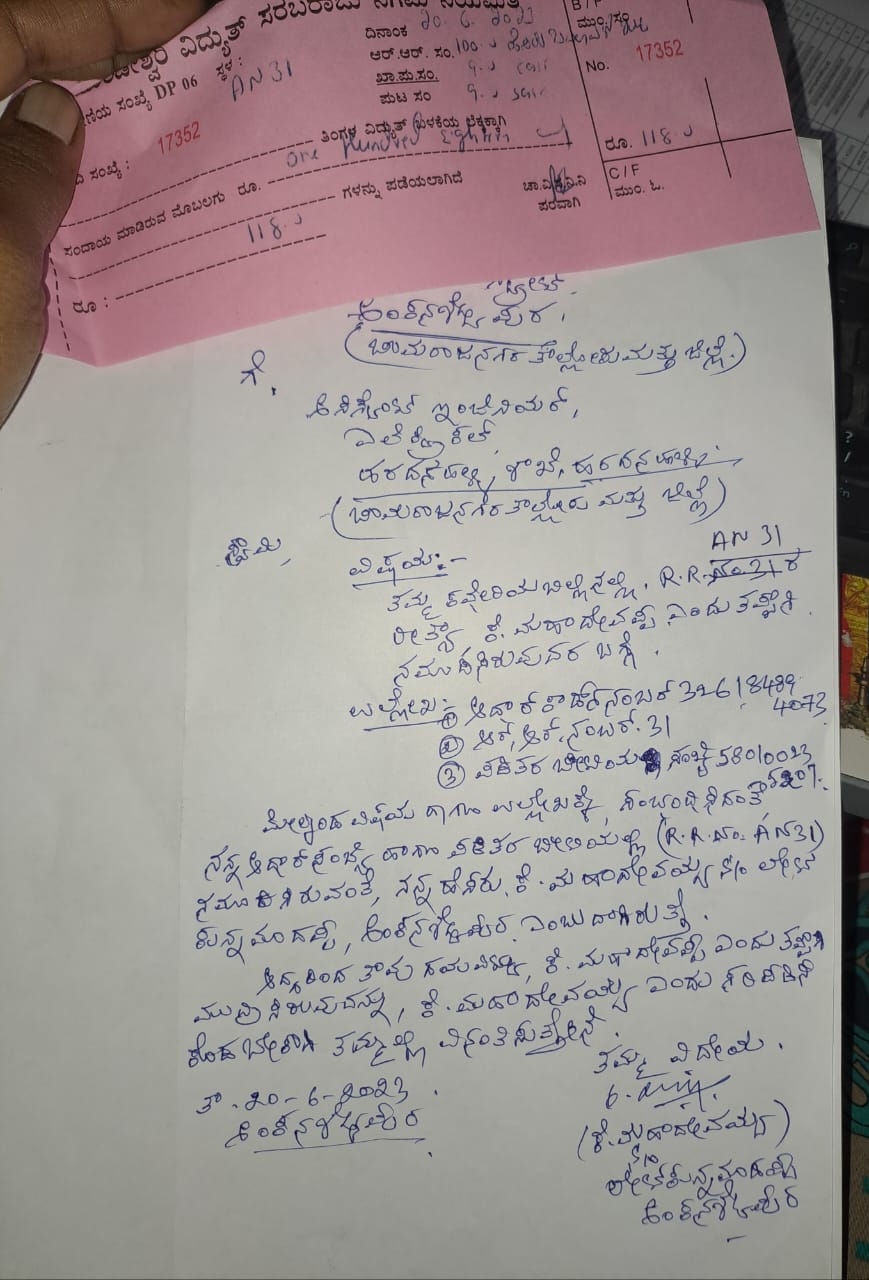 ವಿದ್ಯುತ್ ಸರಬರಾಜು ನಿಗಮ ನಿಯಮಿತ
ದಿನಾಂಕ 20.6.2023
ಸಂಖ್ಯೆ DP 06 ಸ್ಥಳ : AN 31
ಆರ್.ಆರ್. ಸಂ. 100
ಖಾ.ಪು.ಸಂ.
ಪುಟ ಸಂ
No. 17352
ಸಂಖ್ಯೆ : 17352
ತಿಂಗಳ ವಿದ್ಯುತ್ ಬಳಕೆಯ ಲೆಕ್ಕಕ್ಕಾಗಿ
ಸಂದಾಯ ಮಾಡಿರುವ ಮೊಬಲಗು ರೂ. One Hundred Eighteen
ಗಳನ್ನು ಪಡೆಯಲಾಗಿದೆ
ರೂ. 118
C/F
ಮುಂ. ಓ.
ಚಾ.ವಿ.ಸ.ನಿ.ನಿ
ಪರವಾಗಿ
ರೂ : 118
(ಚಾಮರಾಜನಗರ ತಾಲ್ಲೋಕು ಮತ್ತು ಜಿಲ್ಲೆ.)
ಗೆ,
ಅಸಿಸ್ಟೆಂಟ್ ಇಂಜಿನಿಯರ್,
ಎಲೆಕ್ಟ್ರಿಕಲ್,
ಹರದನಹಳ್ಳಿ ಶಾಖೆ, ಹರದನಹಳ್ಳಿ.
(ಚಾಮರಾಜನಗರ ತಾಲ್ಲೋಕು ಮತ್ತು ಜಿಲ್ಲೆ)
ಸ್ವಾಮಿ,
AN 31
ವಿಷಯ:-
ತಮ್ಮ ಕಛೇರಿಯ ಬಿಲ್ಲಿನಲ್ಲಿ, R.R. ನಂ. 31 ರ
ರೀತ್ಯಾ ಕೆ. ಮಹಾದೇವಪ್ಪ ಎಂದು ತಪ್ಪಾಗಿ
ನಮೂದಿಸಿರುವುದರ ಬಗ್ಗೆ.
ಉಲ್ಲೇಖ: ① ಆದಾರ್ ಕಾರ್ಡ್ ನಂಬರ್ 3261 8489
4073
② ಆರ್, ಆರ್. ನಂಬರ್. 31
③ ಪಡಿತರ ಚೀಟಿಯ ಸಂಖ್ಯೆ 58010023
ಮೇಲ್ಕಂಡ ವಿಷಯ ಹಾಗೂ ಉಲ್ಲೇಖಕ್ಕೆ, ಸಂಬಂಧಿಸಿದಂತೆ
ನನ್ನ ಆಧಾರ್ ಸಂಖ್ಯೆ ಹಾಗೂ ಪಡಿತರ ಚೀಟಿಯಲ್ಲಿ (R.R. No. AN31)
ನಮೂದಿಸಿರುವಂತೆ, ನನ್ನ ಹೆಸರು, ಕೆ. ಮಹಾದೇವಯ್ಯ S/o ಲೇಟ್
ಎಂಬುದಾಗಿರುತ್ತೆ.
ಆದ್ದರಿಂದ ತಾವು ದಯವಿಟ್ಟು, ಕೆ. ಮಹಾದೇವಪ್ಪ ಎಂದು ತಪ್ಪಾಗಿ
ಮುದ್ರಿಸಿರುವುದನ್ನು, ಕೆ. ಮಹಾದೇವಯ್ಯ ಎಂದು ಸರಿಪಡಿಸಿ
ಕೊಡಬೇಕಾಗಿ ತಮ್ಮಲ್ಲಿ ವಿನಂತಿಸುತ್ತೇನೆ.
ತಮ್ಮ ವಿದೇಯ.
ತಾ. 20-6-2023.
(ಕೆ. ಮಹಾದೇವಯ್ಯ)
S/o